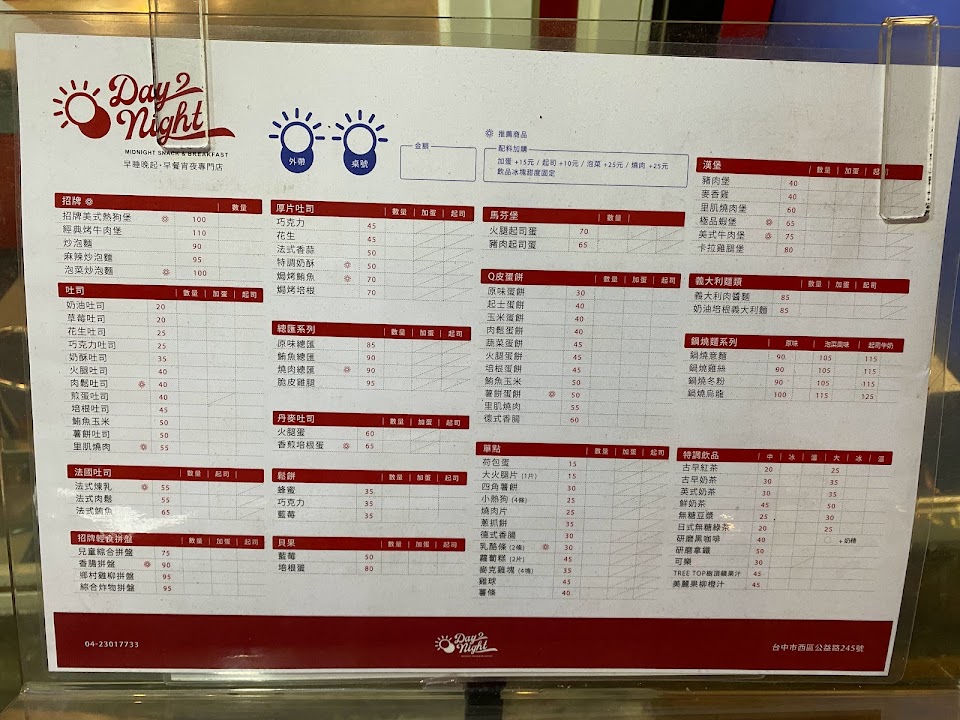 Day 2 Night
MIDNIGHT SNACK & BREAKFAST
早睡晚起・早餐宵夜專門店
外帶
桌號
金額
推薦商品
配料加購
加蛋 +15元 / 起司 +10元 / 泡菜 +25元 / 燒肉 +25元
飲品冰塊甜度固定
招牌 數量
招牌美式熱狗堡 100
經典烤牛肉堡 110
炒泡麵 90
麻辣炒泡麵 95
泡菜炒泡麵 100
吐司 數量 加蛋 起司
奶油吐司 20
草莓吐司 20
花生吐司 25
巧克力吐司 25
奶酥吐司 35
火腿吐司 40
肉鬆吐司 40
煎蛋吐司 40
培根吐司 45
鮪魚玉米 50
薯餅吐司 50
里肌燒肉 55
法國吐司 數量 起司
法式煉乳 55
法式肉鬆 55
法式鮪魚 65
招牌輕食拼盤 數量 加蛋 起司
兒童綜合拼盤 75
香腸拼盤 90
鄉村雞柳拼盤 95
綜合炸物拼盤 95
厚片吐司 數量 加蛋 起司
巧克力 45
花生 45
法式香蒜 50
特調奶酥 50
焗烤鮪魚 70
焗烤培根 70
總匯系列 數量 加蛋 起司
原味總匯 85
鮪魚總匯 90
燒肉總匯 90
脆皮雞腿 95
丹麥吐司 數量 加蛋 起司
火腿蛋 60
香煎培根蛋 65
鬆餅 數量 加蛋 起司
蜂蜜 35
巧克力 35
藍莓 35
貝果 數量 加蛋 起司
藍莓 50
培根蛋 80
馬芬堡 數量
火腿起司蛋 70
豬肉起司蛋 65
Q皮蛋餅 數量 加蛋 起司
原味蛋餅 30
起士蛋餅 40
玉米蛋餅 40
肉鬆蛋餅 40
蔬菜蛋餅 45
火腿蛋餅 45
培根蛋餅 45
鮪魚玉米 50
薯餅蛋餅 50
里肌燒肉 55
德式香腸 60
單點 數量 加蛋 起司
荷包蛋 15
大火腿片 (1片) 15
四角薯餅 30
小熱狗 (4條) 25
燒肉片 25
蔥抓餅 35
德式香腸 30
乳酪條 (2條) 30
蘿蔔糕 (2片) 45
麥克雞塊 (4塊) 35
雞球 45
薯條 40
漢堡 數量 加蛋 起司
豬肉堡 40
麥香雞 40
里肌燒肉堡 60
極品蝦堡 65
美式牛肉堡 75
卡拉雞腿堡 80
義大利麵類 數量 加蛋 起司
義大利肉醬麵 85
奶油培根義大利麵 85
鍋燒麵系列 原味 泡菜風味 起司牛奶
鍋燒意麵 90 105 115
鍋燒雞絲 90 105 115
鍋燒冬粉 90 105 115
鍋燒烏龍 100 115 125
特調飲品 中 冰 溫 大 冰 溫
古早紅茶 20 25
古早奶茶 30 35
英式奶茶 30 35
鮮奶茶 45 50
無糖豆漿 25 30
日式無糖綠茶 20 25
研磨黑咖啡 40 +奶精
研磨拿鐵 50
可樂 30
TREE TOP樹頂蘋果汁 45
美麗果柳橙汁 45
04-23017733
Day 2 Night
台中市西區公益路245號